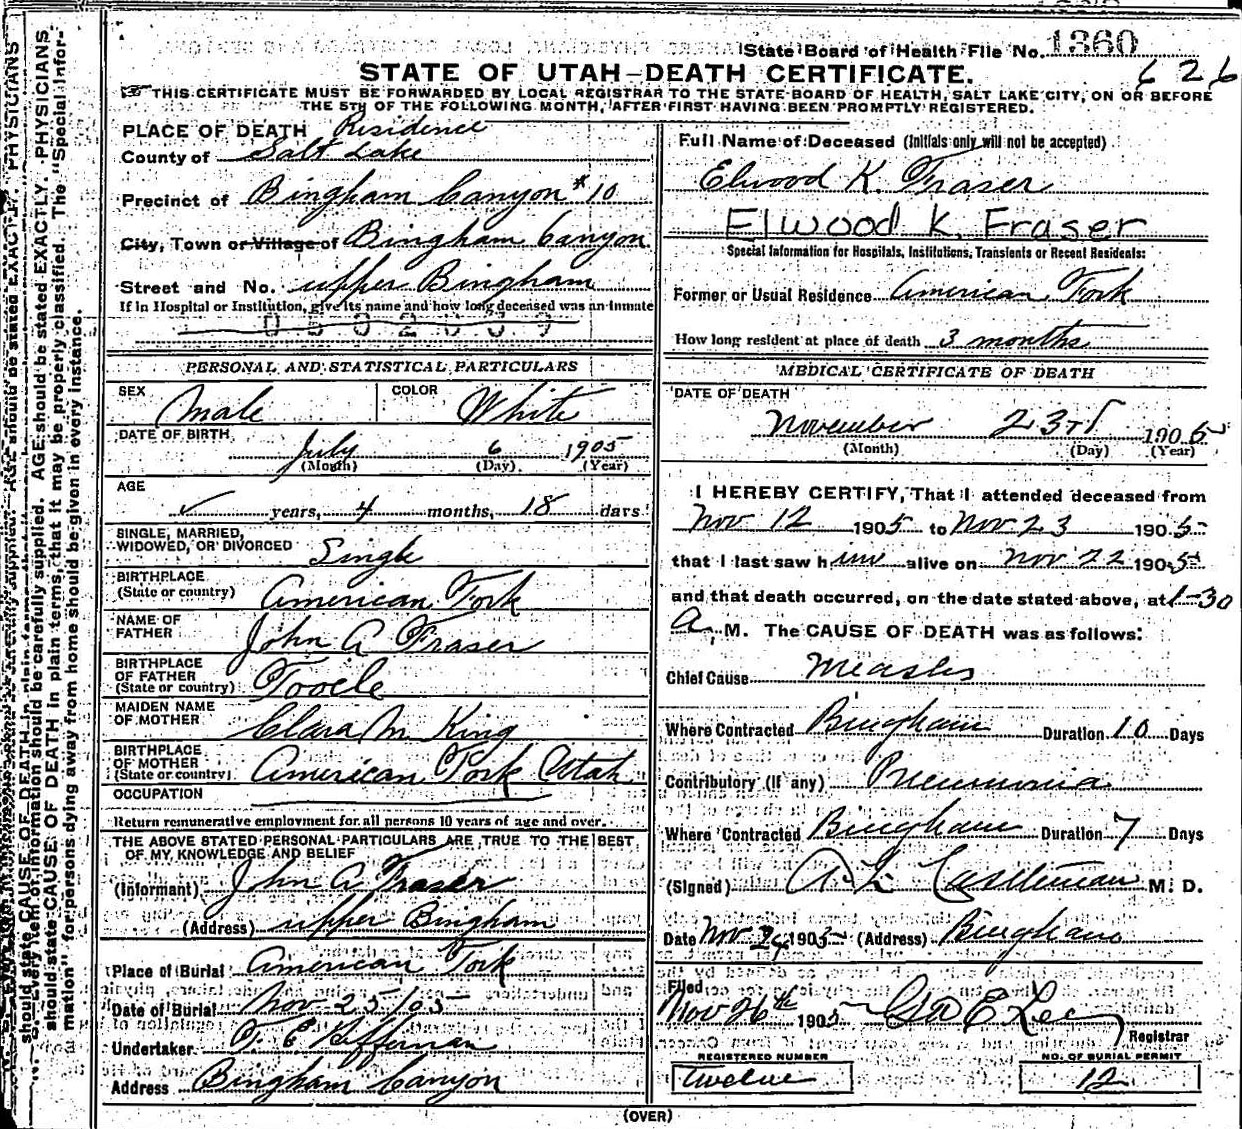 State Board of Health File No. 1360
626
STATE OF UTAH—DEATH CERTIFICATE.
THIS CERTIFICATE MUST BE FORWARDED BY LOCAL REGISTRAR TO THE STATE BOARD OF HEALTH, SALT LAKE CITY, ON OR BEFORE
THE 5TH OF THE FOLLOWING MONTH, AFTER FIRST HAVING BEEN PROMPTLY REGISTERED.
PLACE OF DEATH Residence
County of Salt Lake
Precinct of Bingham Canyon #10
City, Town or Village of Bingham Canyon
Street and No. upper Bingham
If in Hospital or Institution, give its name and how long deceased was an inmate
PERSONAL AND STATISTICAL PARTICULARS
SEX Male COLOR White
DATE OF BIRTH July 6 1905
(Month) (Day) (Year)
AGE
years, 4 months, 18 days
SINGLE, MARRIED,
WIDOWED, OR DIVORCED Single
BIRTHPLACE
(State or country) American Fork
NAME OF
FATHER John A Fraser
BIRTHPLACE
OF FATHER
(State or country) Tooele
MAIDEN NAME
OF MOTHER Clara M. King
BIRTHPLACE
OF MOTHER
(State or country) American Fork Utah
OCCUPATION
Return remunerative employment for all persons 10 years of age and over.
THE ABOVE STATED PERSONAL PARTICULARS ARE TRUE TO THE BEST
OF MY KNOWLEDGE AND BELIEF
(Informant) John A Fraser
(Address) upper Bingham
Place of Burial American Fork
Date of Burial Nov-25/05
Undertaker
Address Bingham Canyon
Full Name of Deceased (Initials only will not be accepted)
Elwood K. Fraser
Elwood K. Fraser
Special Information for Hospitals, Institutions, Transients or Recent Residents:
Former or Usual Residence American Fork
How long resident at place of death 3 months
MEDICAL CERTIFICATE OF DEATH
DATE OF DEATH
November 23rd 1905
(Month) (Day) (Year)
I HEREBY CERTIFY, That I attended deceased from
Nov 12 1905 to Nov 23 1905
that I last saw him alive on Nov 22 1905
and that death occurred, on the date stated above, at 1-30
A. M. The CAUSE OF DEATH was as follows:
Chief Cause Measles
Where Contracted Bingham Duration 10 Days
Contributory (If any) Pneumonia
Where Contracted Bingham Duration 7 Days
(Signed) A. L. Castleman M. D.
Date Nov 24 1905 (Address) Bingham
Filed
Nov 26th 1905 Geo E Lee
Registrar
REGISTERED NUMBER
Twelve
NO. OF BURIAL PERMIT
12
(OVER)
Every item of information should be carefully supplied. AGE should be stated EXACTLY. PHYSICIANS
should state CAUSE OF DEATH in plain terms, that it may be properly classified. The "Special Infor-
mation" for persons dying away from home should be given in every instance.